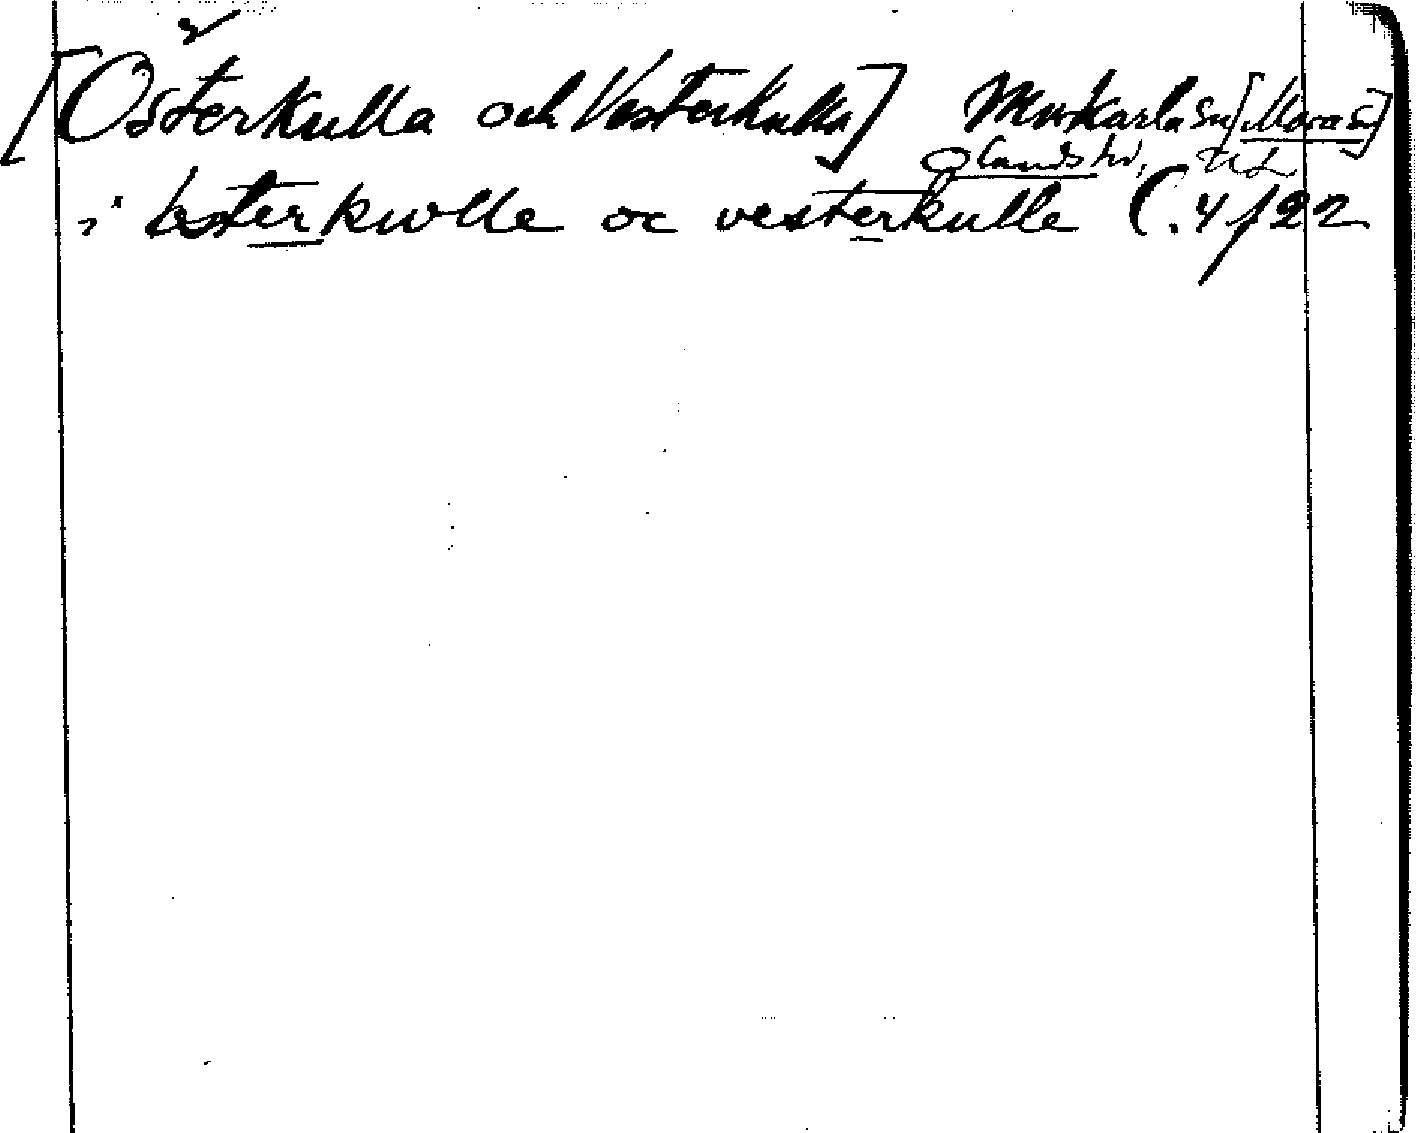 [Österkulla och Vesterkulla] Morkarla sn [Mora sn]
Olands hd, UL
i østerkwlle oc vesterkulle C. 4 f 22